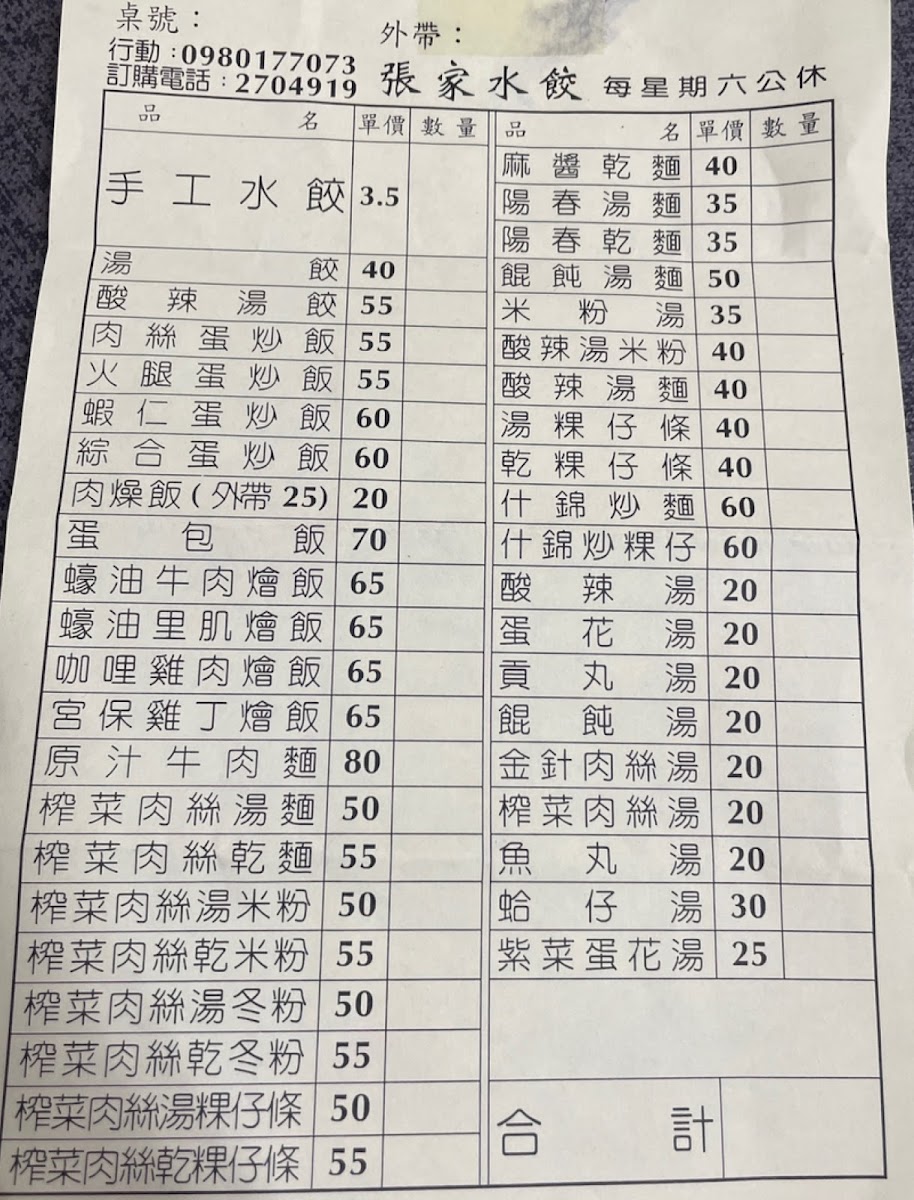 桌號：
外帶：
行動：0980177073
訂購電話：2704919
張家水餃 每星期六公休
品名 單價 數量
手工水餃 3.5
湯餃 40
酸辣湯餃 55
肉絲蛋炒飯 55
火腿蛋炒飯 55
蝦仁蛋炒飯 60
綜合蛋炒飯 60
肉燥飯(外帶25) 20
蛋包飯 70
蠔油牛肉燴飯 65
蠔油里肌燴飯 65
咖哩雞肉燴飯 65
宮保雞丁燴飯 65
原汁牛肉麵 80
榨菜肉絲湯麵 50
榨菜肉絲乾麵 55
榨菜肉絲湯米粉 50
榨菜肉絲乾米粉 55
榨菜肉絲湯冬粉 50
榨菜肉絲乾冬粉 55
榨菜肉絲湯粿仔條 50
榨菜肉絲乾粿仔條 55
品名 單價 數量
麻醬乾麵 40
陽春湯麵 35
陽春乾麵 35
餛飩湯麵 50
米粉湯 35
酸辣湯米粉 40
酸辣湯麵 40
湯粿仔條 40
乾粿仔條 40
什錦炒麵 60
什錦炒粿仔 60
酸辣湯 20
蛋花湯 20
貢丸湯 20
餛飩湯 20
金針肉絲湯 20
榨菜肉絲湯 20
魚丸湯 20
蛤仔湯 30
紫菜蛋花湯 25
合計